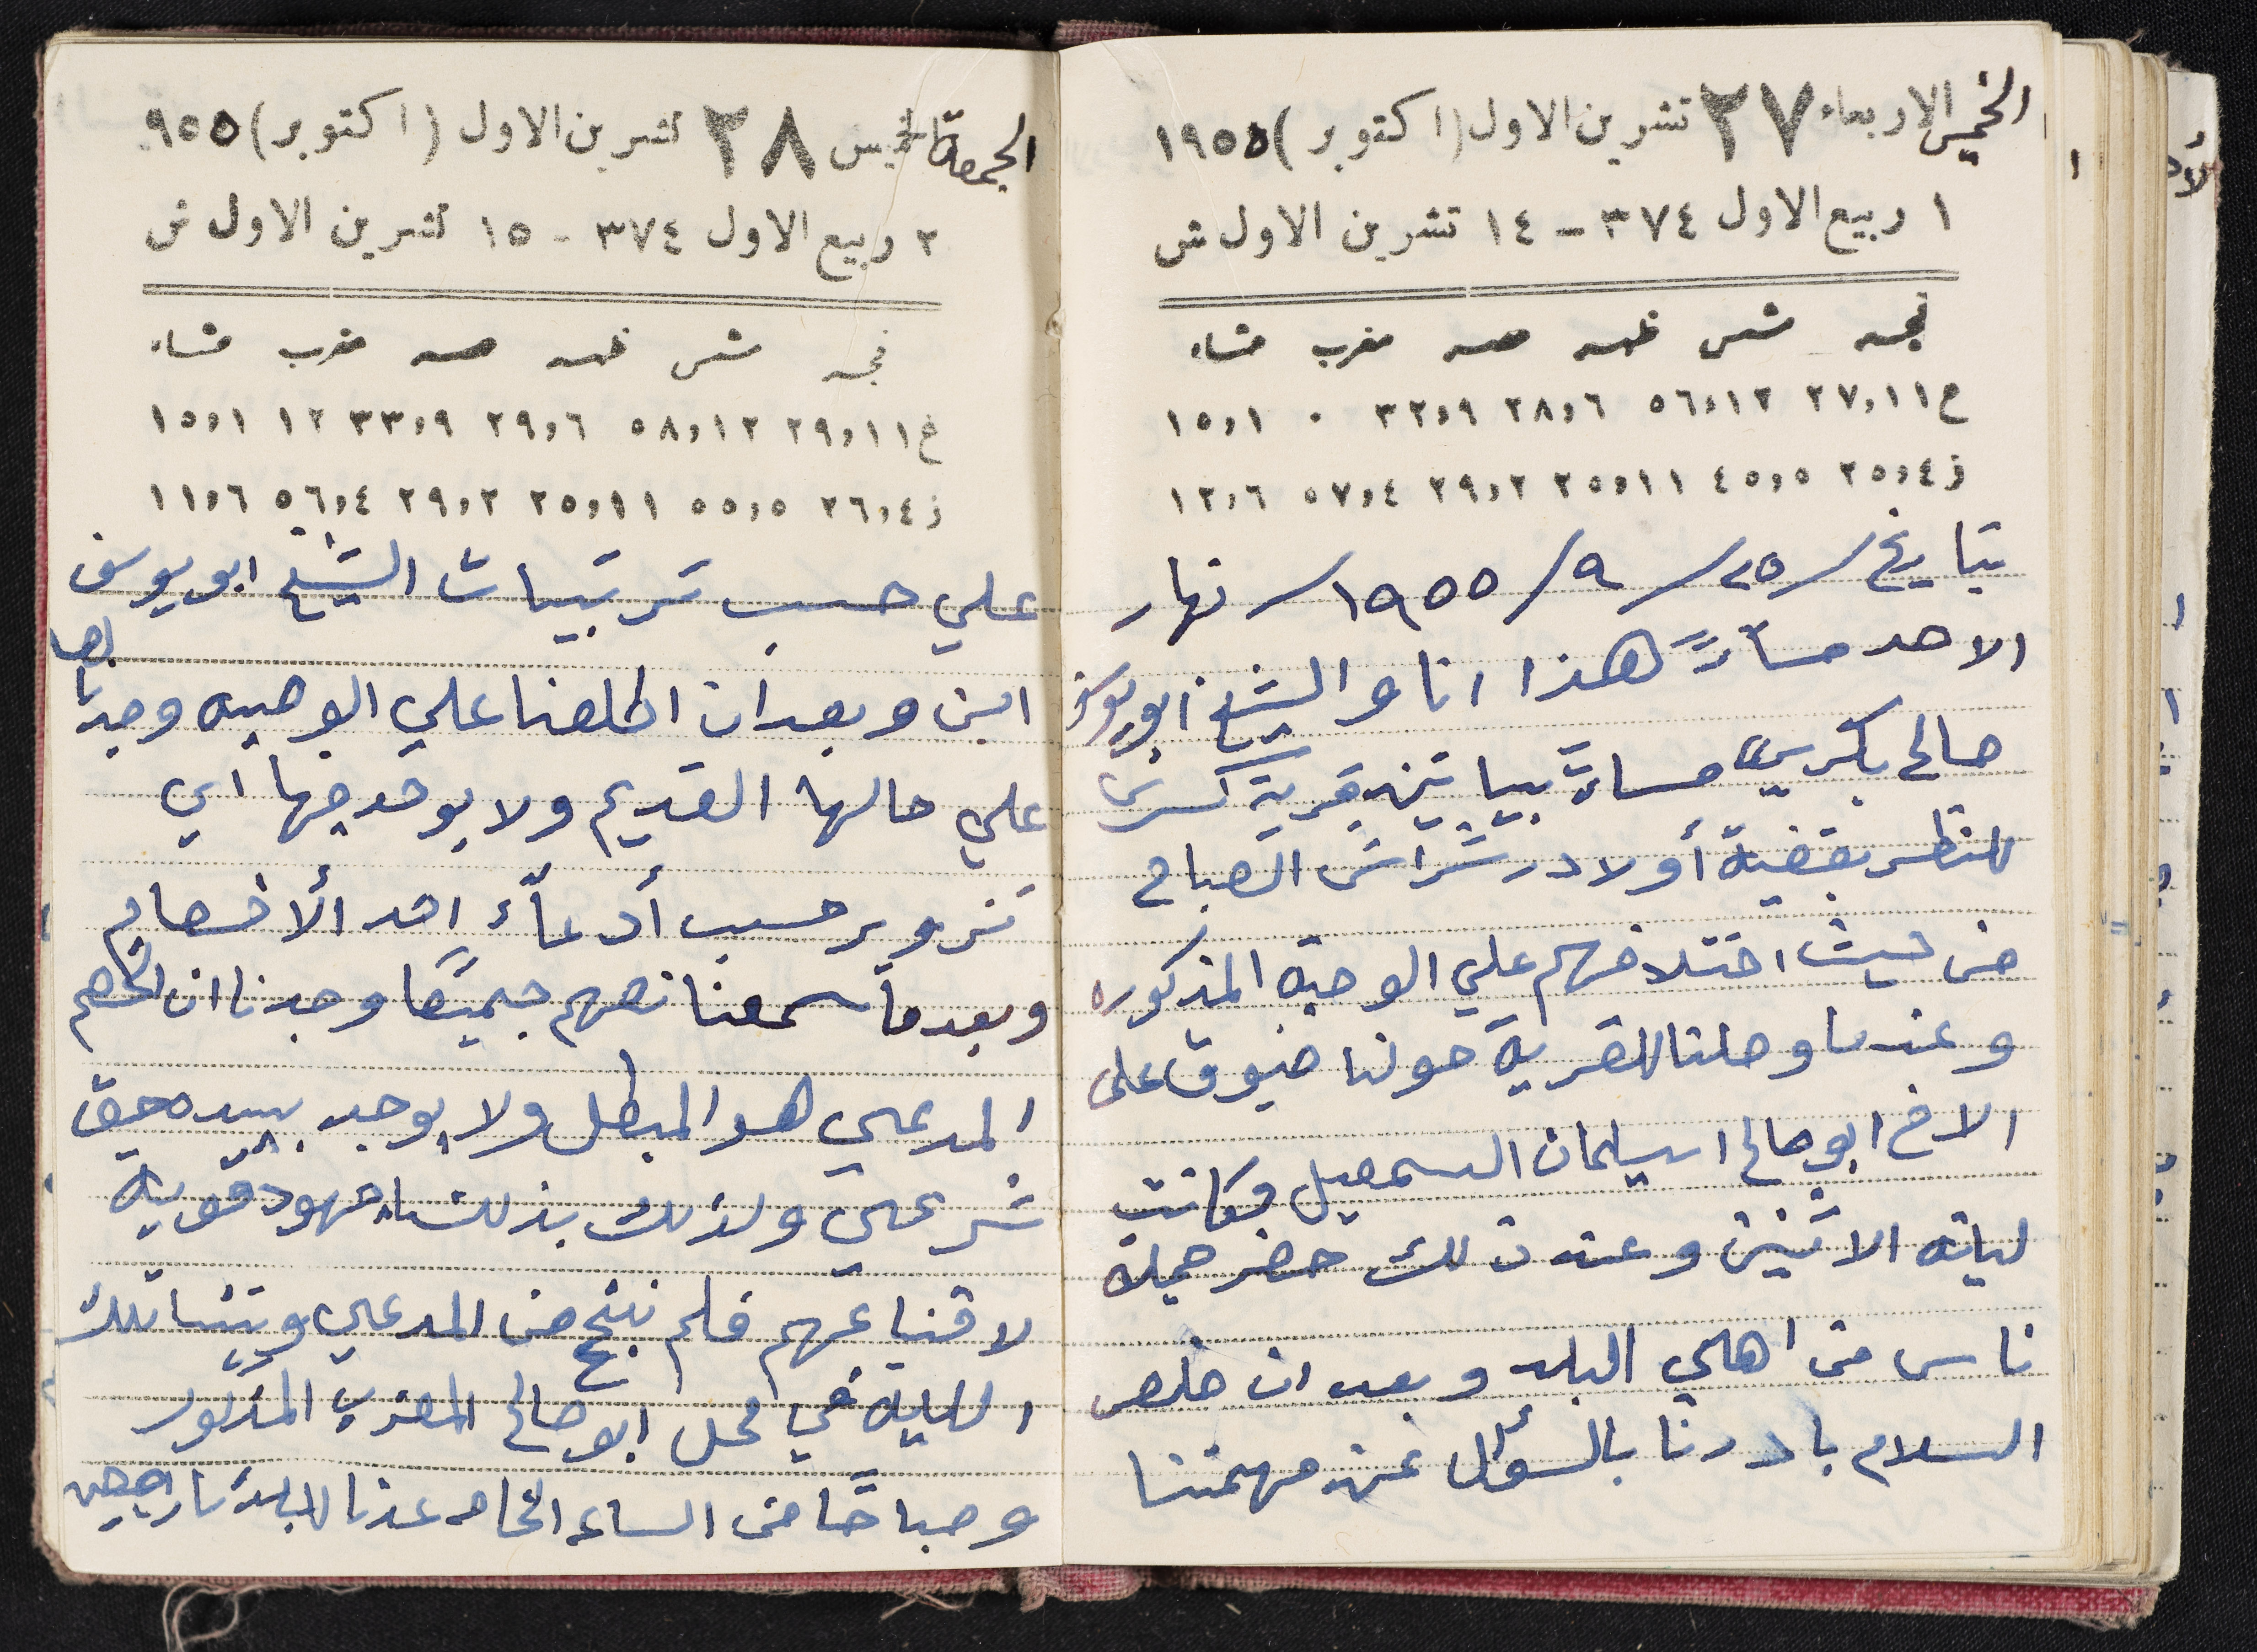 الخميس الاربعاء ٢٧ تشرين الاول (اكتوبر) ١٩٥٥
١ ربيع الاول ٣٧٤ - ١٤ تشرين الاول ش
فجر شمس ظهر عصر مغرب عشاء
ع ٢٧,١١ ٥٦,١٢ ٢٨,٦ ٣٢,٩ ٠ ١٥,١
ز ٢٥,٤ ٤٥,٥ ٢٥,١١ ٢٩,٢ ٥٧,٤ ١٢,٦
بتايخ / ٢٥ / ٩ / ١٩٥٥ / نهار
الاحد مساءً هذا انا والشيخ ابو يوسف
صالح بكري مساءً بياتين قرية كسرى
للنظر بقضية أولاد الصباح
من حيث اختلافهم علي الوصية المذكوره
وعندما وصلنا للقرية حولنا ضيوف على
الاخ ابو صالح اسليمان السمعيل وكانت
ليلة الاثنين وعند ذلك حضر جملة
ناس من اهلي البلد وبعد ان خلص
السلام بادرنا بالسؤال عن مهمتنا
الجمعة الخميس ٢٨ تشرين الاول (اكتوبر) ٩٥٥
٢ ربيع الاول ٣٧٤ - ١٥ تشرين الاول ش
فجر شمس ظهر عصر مغرب عشاء
غ ٢٩,١١ ٥٨,١٢ ٢٩,٦ ٣٣,٩ ١٢ ١٥,١
ز ٢٦,٤ ٥٥,٥ ٢٥,١١ ٢٩,٢ ٥٦,٤ ١١,٦
علي حسب ترتيبات الشيخ ابو يوسف
امين وبعد ان اطلعنا علي الوصيه وجدناها
علي حالها القديم ولا يوجد فيها اي
تزوير حسب أدعاّء احد ألأخصام
وبعدما سمعنا نصهم جميعًا وجدنا ان الخصم
المدعي هو المبطل ولا يوجد بيده حق
شرعي ولذلك بذلنا جهود قوية
لاقنياعهم فلم ننجح من المدعي وبتنا تلك
الليله في محل ابو صالح المعزب المذكور
وصباحًا من الساعه الخامسه عدنا للبلد راجعين